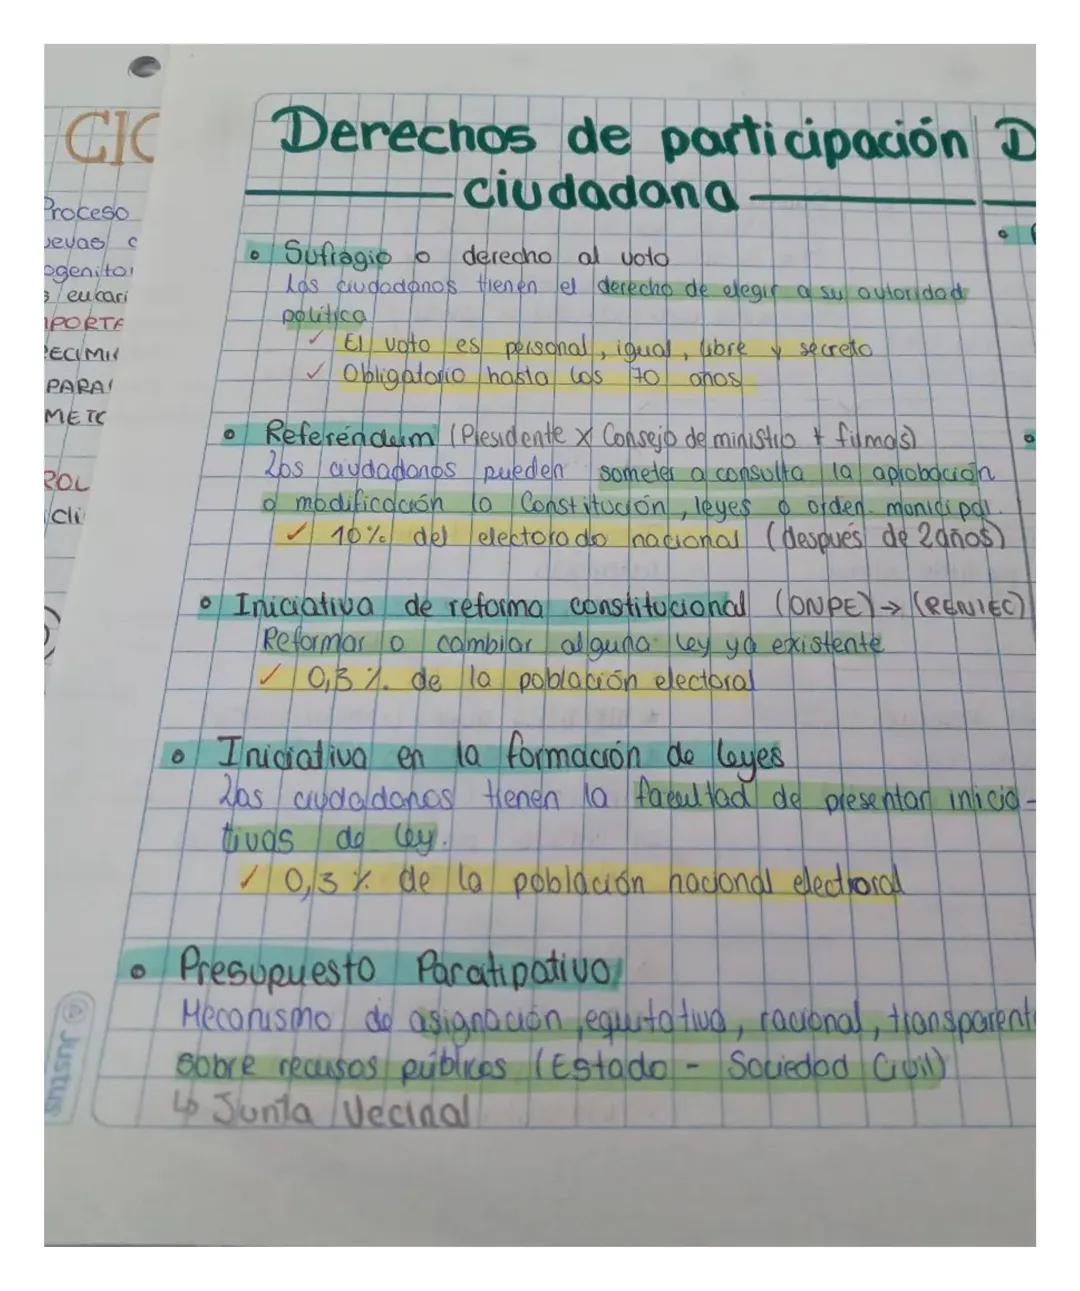 CIC
Proceso
uevas c
ogenitor
s eucari
MPORTA
PECIMIE
PARA
METO
ROL
Cli
Derechos de participación D
ciudadana
• Sufragio o derecho al voto
Los ciudadanos tienen el derecho de elegir a su autoridad
política
✓ El voto es personal, igual, libre y secreto
✓ Obligatorio hasta los 70 años
• Referéndum (Presidente x Consejo de ministro + firmas)
Los ciudadanos pueden someter a consulta la aprobación
o modificación la Constitución, leyes o orden. municipal.
✓ 10% del electorado nacional (después de 2 años)
• Iniciativa de reforma constitucional (ONPE) → (RENIEC)
Reformar o cambiar alguna ley ya existente
✓ 0,3 % de la población electoral
• Iniciativa en la formación de leyes
Los ciudadanos tienen la facultad de presentar inicia-
tivas de ley.
✓ 0,3 % de la población nacional electroral
• Presupuesto Paratipativo
Mecanismo de asignación, equitativa, racional, transparent
sobre recusos públicos (Estado - Sociedad Civil)
↳ Junta Vecinal
@ Justus